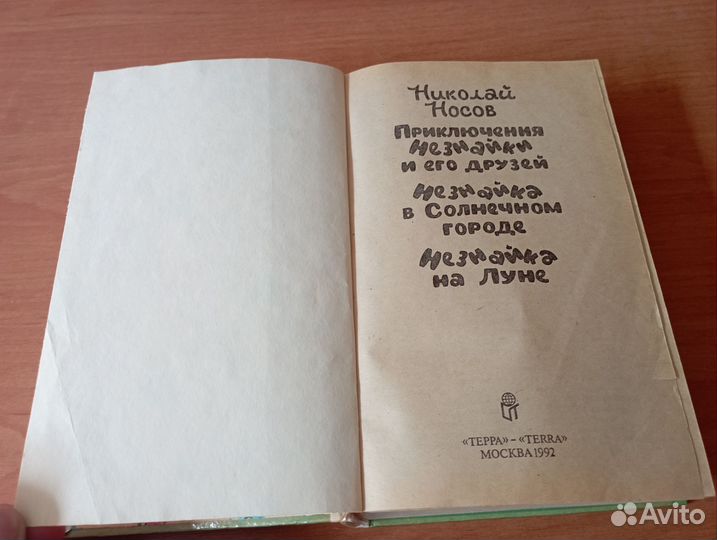 Николай
Носов
Приключения
Незнайки
и его друзей
Незнайка
в Солнечном
городе
Незнайка
на Луне
«ТЕРРА» – «TERRA»
МОСКВА 1992
Avito